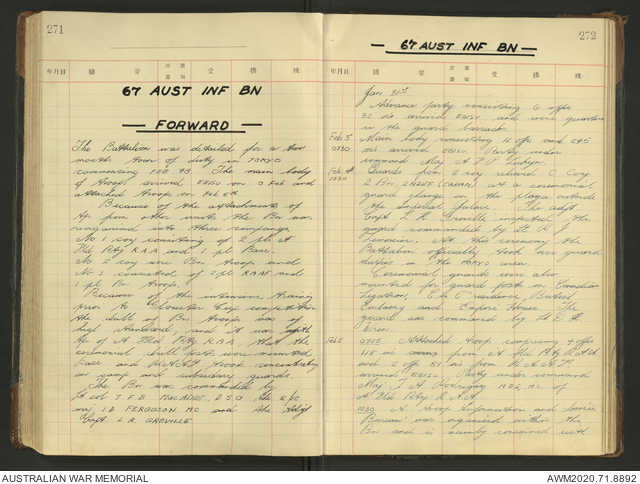 271
年月日 摘 要 受 拂 残
67 AUST INF BN
FORWARD
The Battalion was detailed for a two
month tour of duty in TOKYO
commencing FEB 48 The main body
of troops arrived EBISU on 3 Feb and
attached troops on Feb 5th
Because of the attachments of
tps from other units the Bn was
reorganised into three companys
No 1 coy consisting of 2 pls A
Fld Bty RAA and 1 pl Base.
No 2 coy were Bn troops and
No 3 consisted of 2 pl RAAF and
1 pl Bn troops.
Because of the intensive training
prior to Gloucester Cup competition
the drill of Bn troops was of
high standard, and it was with
tps of A Fld Bty RAA, that the
ceremonial drill posts were mounted
Base and RAAF troops concentrating
on camp and subsidiary guards.
The Bn was commanded by
Lt col T F B MacADIE, DSO the 2/ic
maj I B FERGUSON MC and the Adjt
Capt L R GREVILLE
272
67 AUST INF BN
年月日 摘 要 受 拂 残
Jan 31st
Advance party consisting 6 offs
32 ors arrived EBISU and were quartered
in the guard barracks.
Feb 3rd Main body consisting 16 offs and 245
0130 ors arrived EBISU Party under
command Maj A P P
Feb 4th Guards from E coy relieved C Coy
1030 2 Bn (JAPAN) at a ceremonial
guard change on the plaza outside
the Imperial palace. The adjt
Capt L R Greville inspected the
guard commanded by Lt R J
At this ceremony the
Battalion officially took over guard
duties in the TOKYO area.
Ceremonial guards were also
mounted for guard posts on Canadian
Legation, C in C residence, British
Embassy and Empire House. The
guard was commanded by
Feb 5 0705. Attached troops comprising 4 offs
118 ors from A Fld Bty RAA
and 2 offs 51 ors from RAAF
arrived EBISU. Party under command
Maj. J A MBE, MC of
A Fld Bty RAA
1030 A troop Information and Service
Bureau was organised within the
Bn and is mainly concerned with
AUSTRALIAN WAR MEMORIAL
AWM2020.71.8892